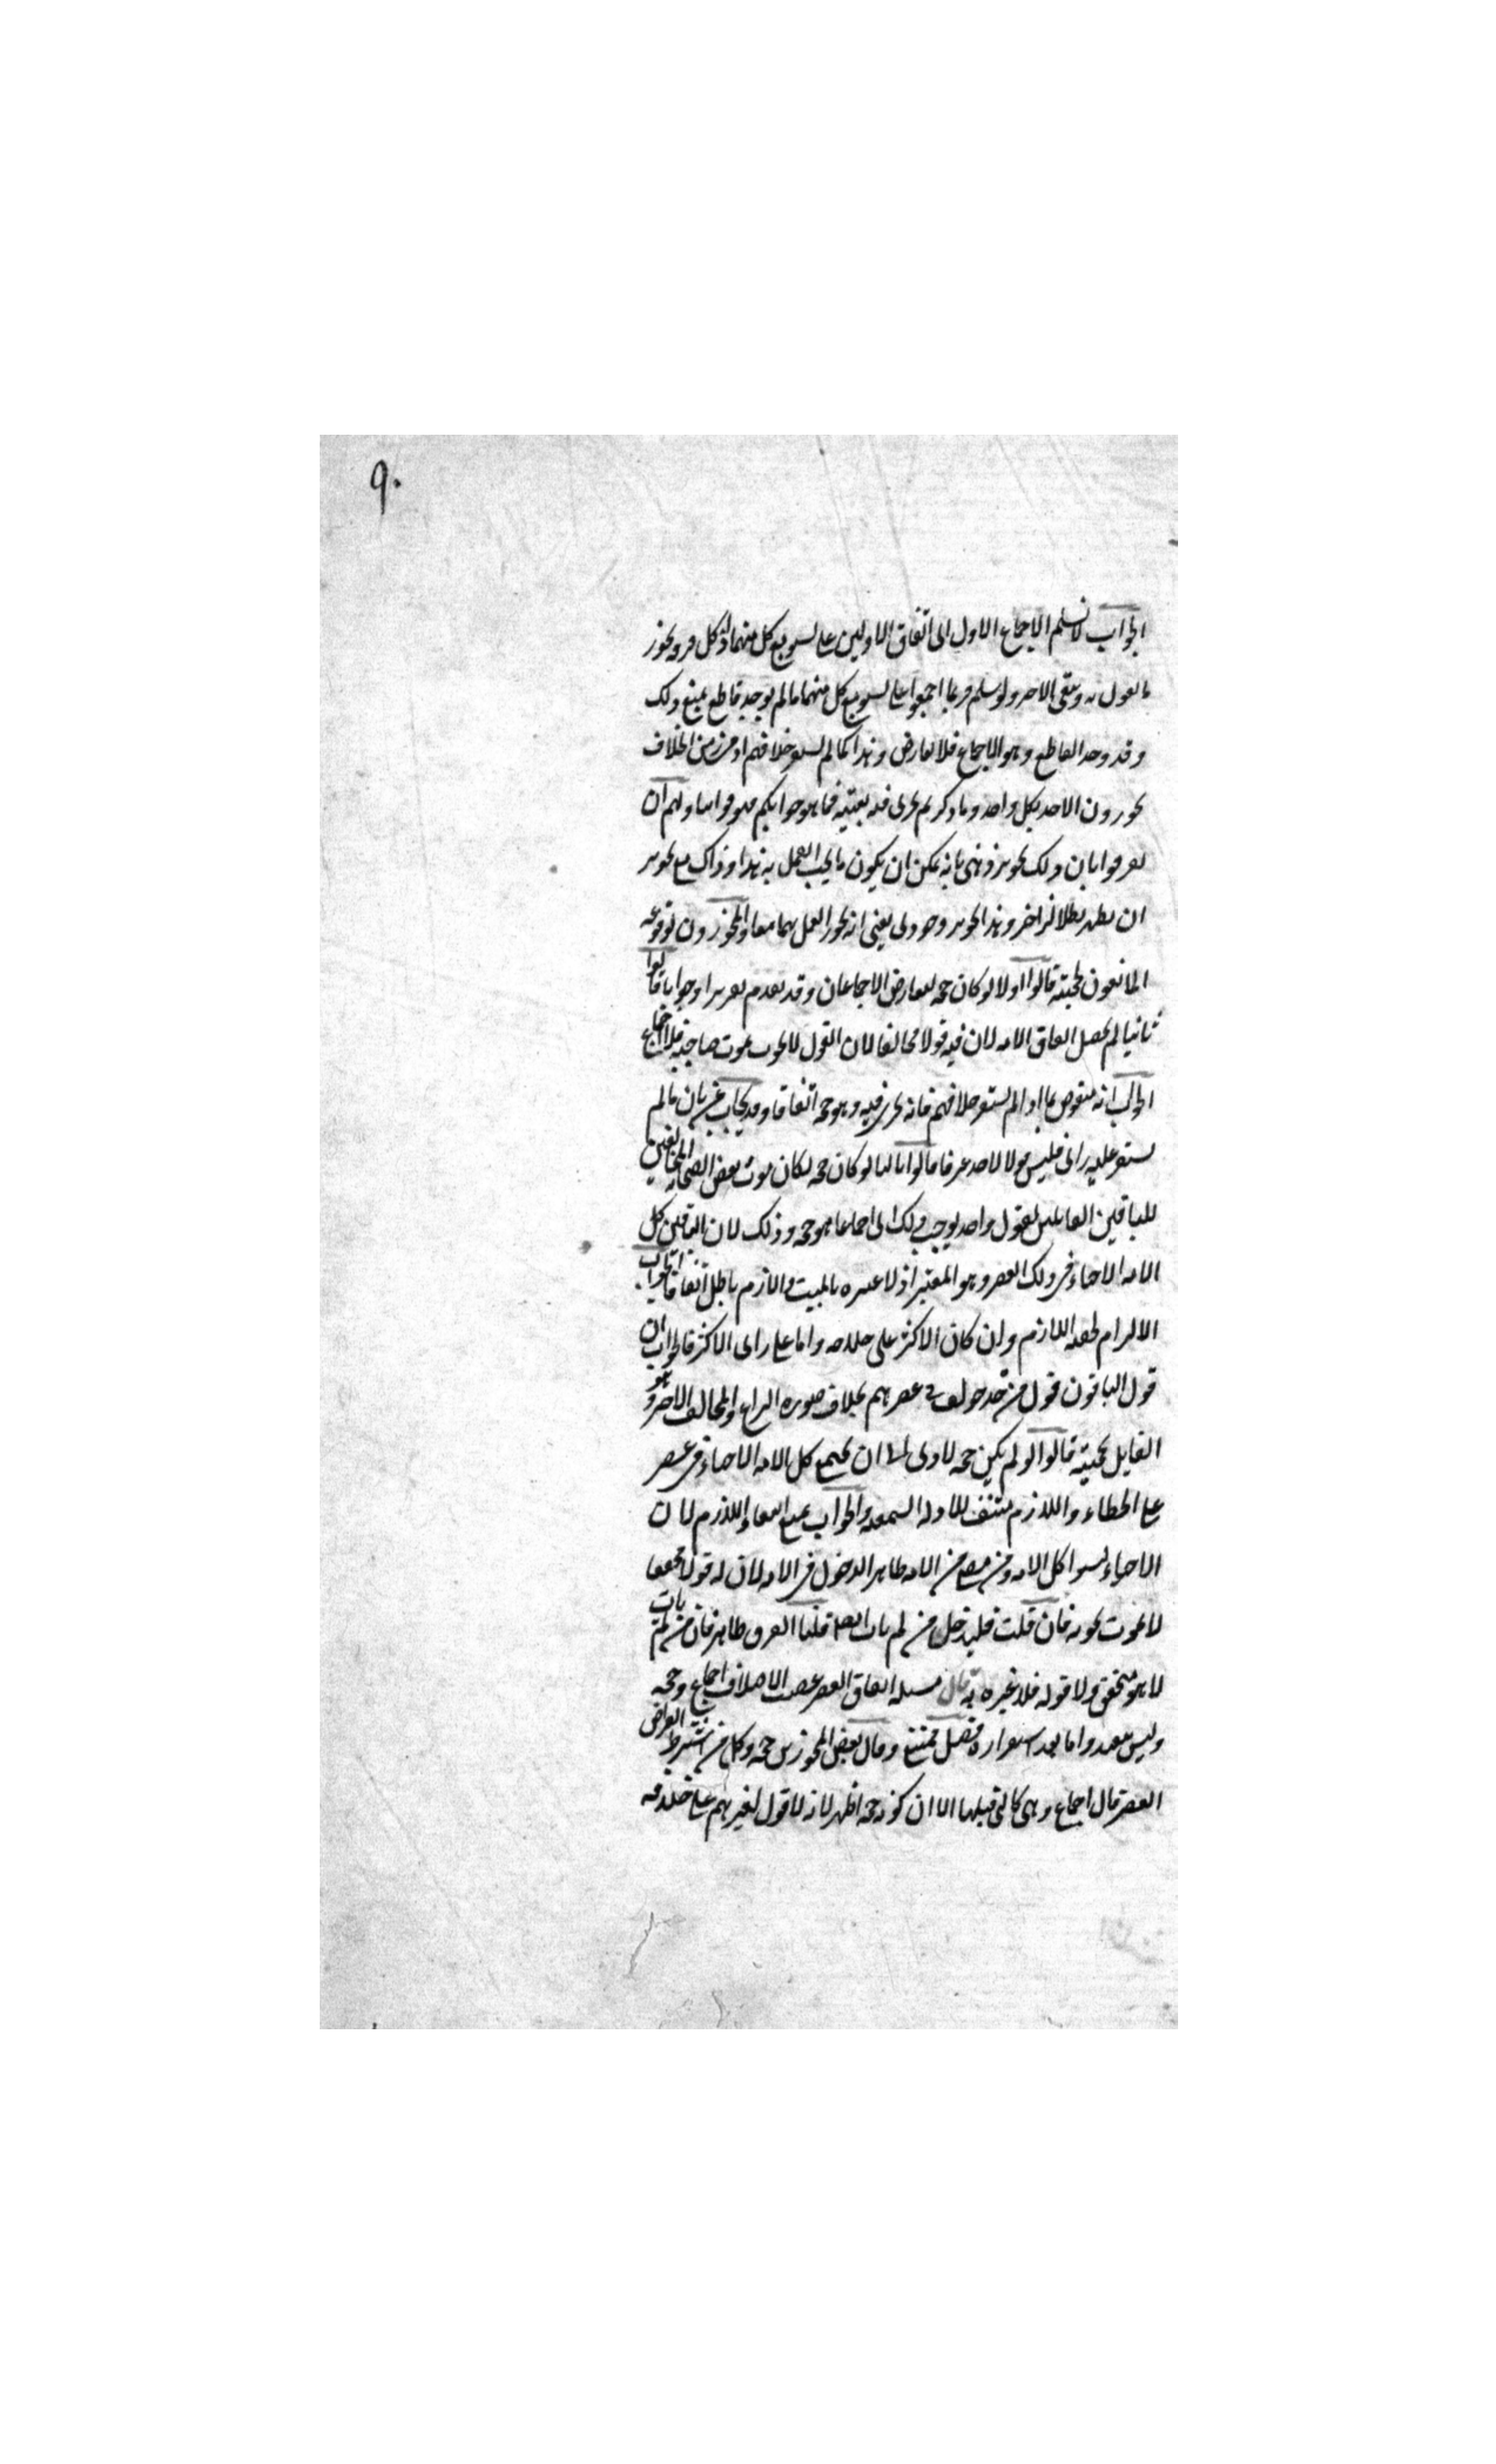 ٩٠
الجواب لا نسلم الاجماع الاول اى اتفاق الاولين على تسويغ كل منهما اذ كل فرقه تجوز
ما تقول به وتنفى الاخر ولو سلم فربما اجمعوا على تسويغ كل منهما ما لم يوجد قاطع يمنع ذلك
وقد وجد القاطع وهو الاجماع فلا تعارض وهذا كما لم يستقر خلافهم اذ من زمن الخلاف
يجوزون الاخذ بكل واحد وما ذكرتم يجرى فيه بعينه فما هو جوابكم فهو جوابنا ولهم ان
يفرقوا بان ذلك تجويز ذهنى بانه يمكن ان يكون ما يجب العمل به هذا او ذاك مع تجويز
ان يظهر بطلان اخر وهذا تجويز وجودى يعنى انه يجوز العمل بهما معا والمجوزون لوقوعه
المانعون لحجيته قالوا اولا لو كان حجه لتعارض الاجماعان وقد تقدم تقريرا وجوابا قالوا
ثانيا لم يحصل اتفاق الامه لان فيه قولا مخالفا لان القول لا يموت بموت صاحبه فلا اجماع
الجواب انه منقوض بما اذا لم يستقر خلافهم فانه يجرى فيه وهو حجه اتفاقا وقد يجاب عنه بان ما لم
يستقر عليه راى فليس قولا لاحد عرفا قالوا ثالثا لو كان حجه لكان موت بعض الصحابه المخالفين
للباقين القايلين بقول واحد يوجب ذلك اى اجماعا هو حجه وذلك لان الباقين كل
الامه الاحياء فى ذلك العصر وهو المعتبر اذ لا عبره بالميت واللازم باطل اتفاقا الجواب
الالزام لحقيه اللازم وان كان الاكثر على خلافه واما على راى الاكثر فالجواب ان
قول الباقون قول من قد خولف فى عصرهم بخلاف صوره النزاع والمخالف الاخر وهو
القايل بحجيته قالوا لو لم يكن حجه لادى الى ان يجتمع كل الامه الاحياء فى عصر
على الخطاء واللازم منتف للادله السمعيه والجواب بمنع انتفاء اللازم لان
الاحياء ليسوا كل الامه ومن مضى من الامه ظاهر الدخول فى الامه لان له قولا محققا
لا يموت بموته فان قلت فليدخل من لم يات ايضا قلنا الفرق ظاهر فان من لم يات
لا هو متحقق ولا قوله فلا عبره به قال مسله اتفاق العصر عقيب الاختلاف اجماع وحجه
وليس ببعيد واما بعد استقراره فقيل ممتنع وقال بعض المجوزين حجه وكل من اشترط انقراض
العصر قال اجماع وهى كالتى قبلها الا ان كونه حجه اظهر لانه لا قول لغيرهم على خلافه